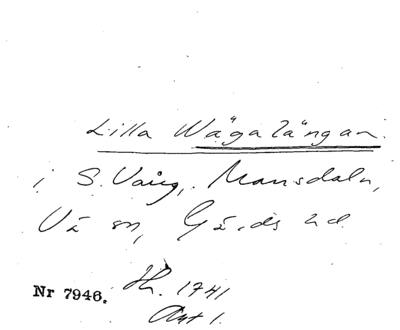 Lilla Wägalängan.
i S. Vång, Mansdala,
Vä sn, Gärds hd
Nr 7946. Hh. 1741
Akt 1.